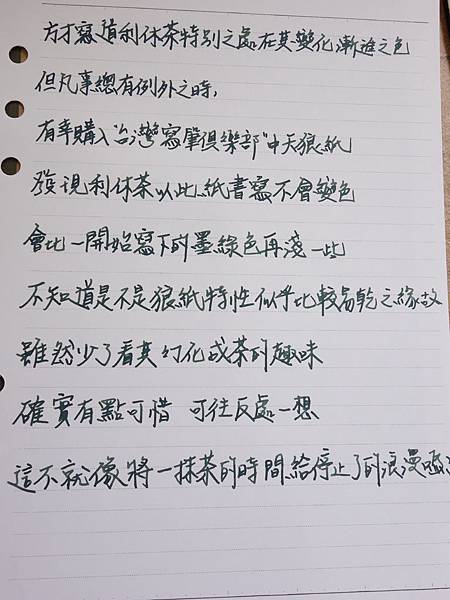 方才寫道利休茶特別之處在其變化漸進之色
但凡事總有例外之時,
有幸購入"台灣寫筆俱樂部"中天狼紙
發現利休茶以此紙書寫不會變色
會比一開始寫下的墨綠色再淺一些
不知道是不是狼紙特性似乎比較易乾之緣故
雖然少了看其幻化成茶的趣味
確實有點可惜 可往反處一想
這不就像將一抹茶的時間給停止了的浪漫嗎